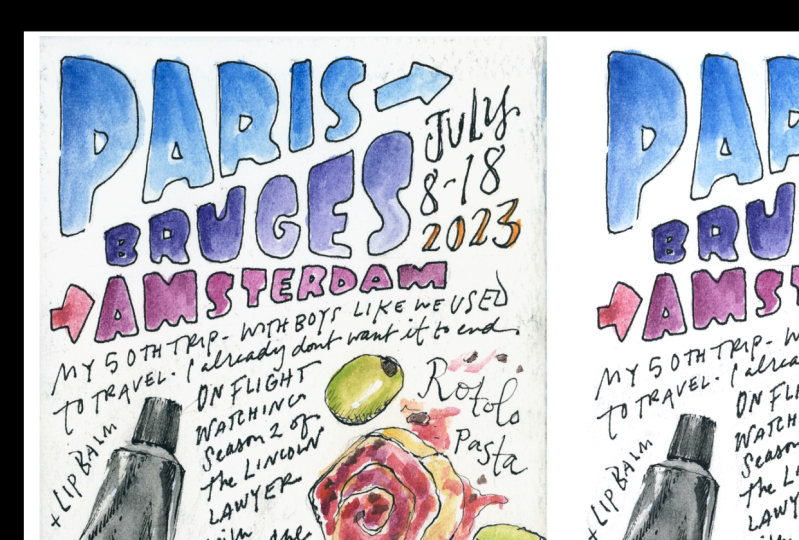 PARIS →
JULY
8-18
2023
BRUGES
→ AMSTERDAM
MY 50TH TRIP - WITH BOYS LIKE WE USED
TO TRAVEL. I already dont want it to end.
ON FLIGHT
WATCHING
Season 2 of
the LINCOLN
LAWYER
with the
+ LIP BALM
Rotolo
Pasta
PAR
BRU
→ AMST
MY 50TH TRIP - W
TO TRAVEL. I alrea
ON FLI
WATCH
Season
the LI
LAWY
+ LIP BALM